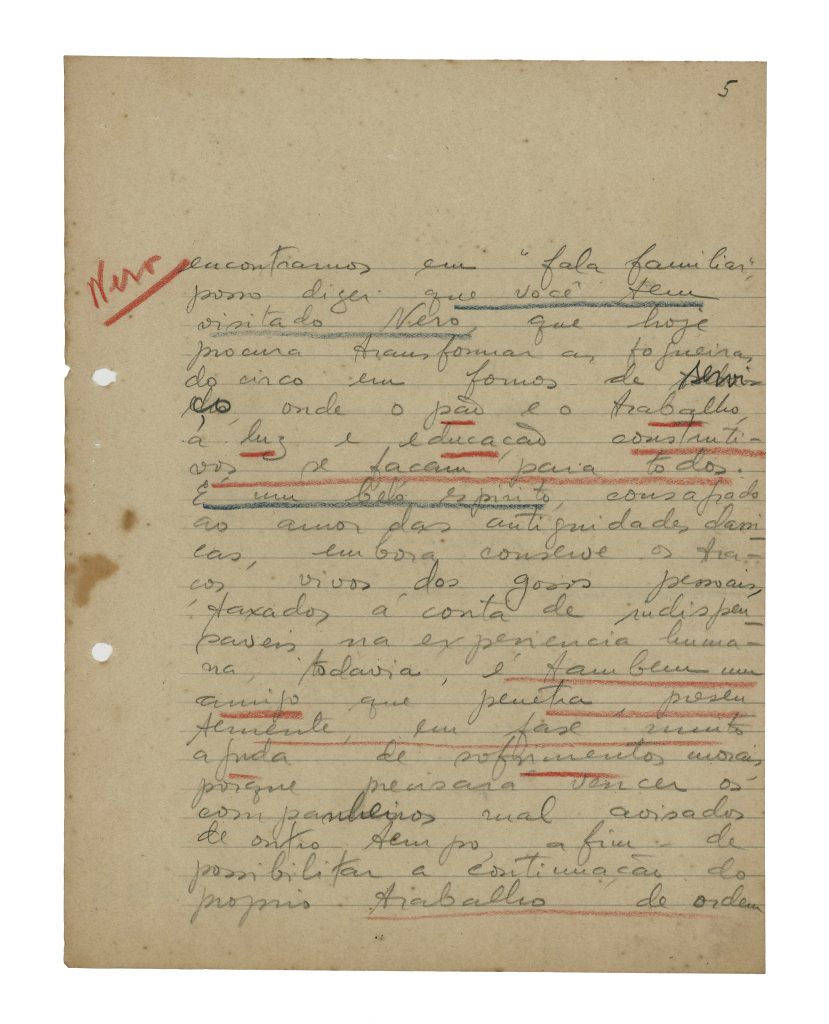 5
Nero
encontramos em "fala familiar",
posso dizer que você tem
visitado Nero, que hoje
procura transformar as fogueiras
do circo em fornos de servi
ço, onde o pão e o trabalho,
a luz e educação construti-
vos se façam para todos.
É um belo espirito, consagrado
ao amor das antiguidades classi
cas, embora conserve os tra-
ços vivos dos gosos pessoais,
taxados á conta de indispen
saveis na experiencia huma-
na, todavia, é tambem um
amigo que penetra, presen
temente, em fase muito
aguda de sofrimentos morais,
porque precisará vencer os
companheiros mal avisados
de outro tempo, a fim de
possibilitar a continuação do
proprio trabalho de ordem